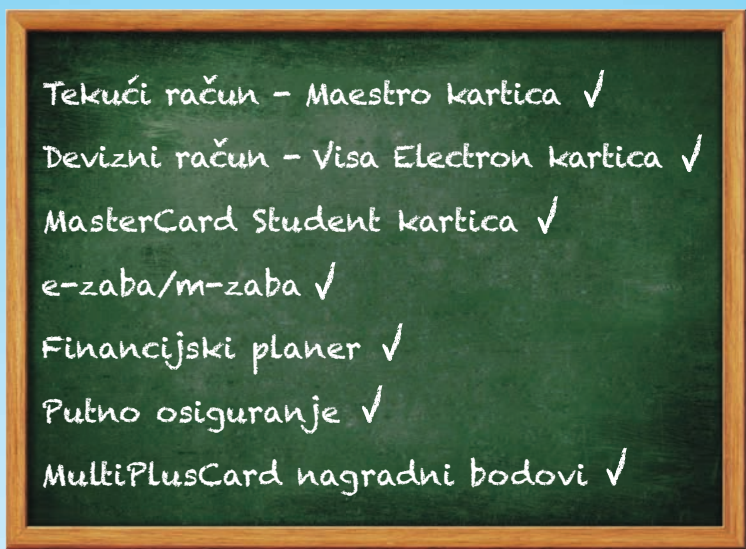 Tekući račun - Maestro kartica √
Devizni račun - Visa Electron kartica √
MasterCard Student kartica √
e-zaba/m-zaba √
Financijski planer √
Putno osiguranje √
MultiPlusCard nagradni bodovi √